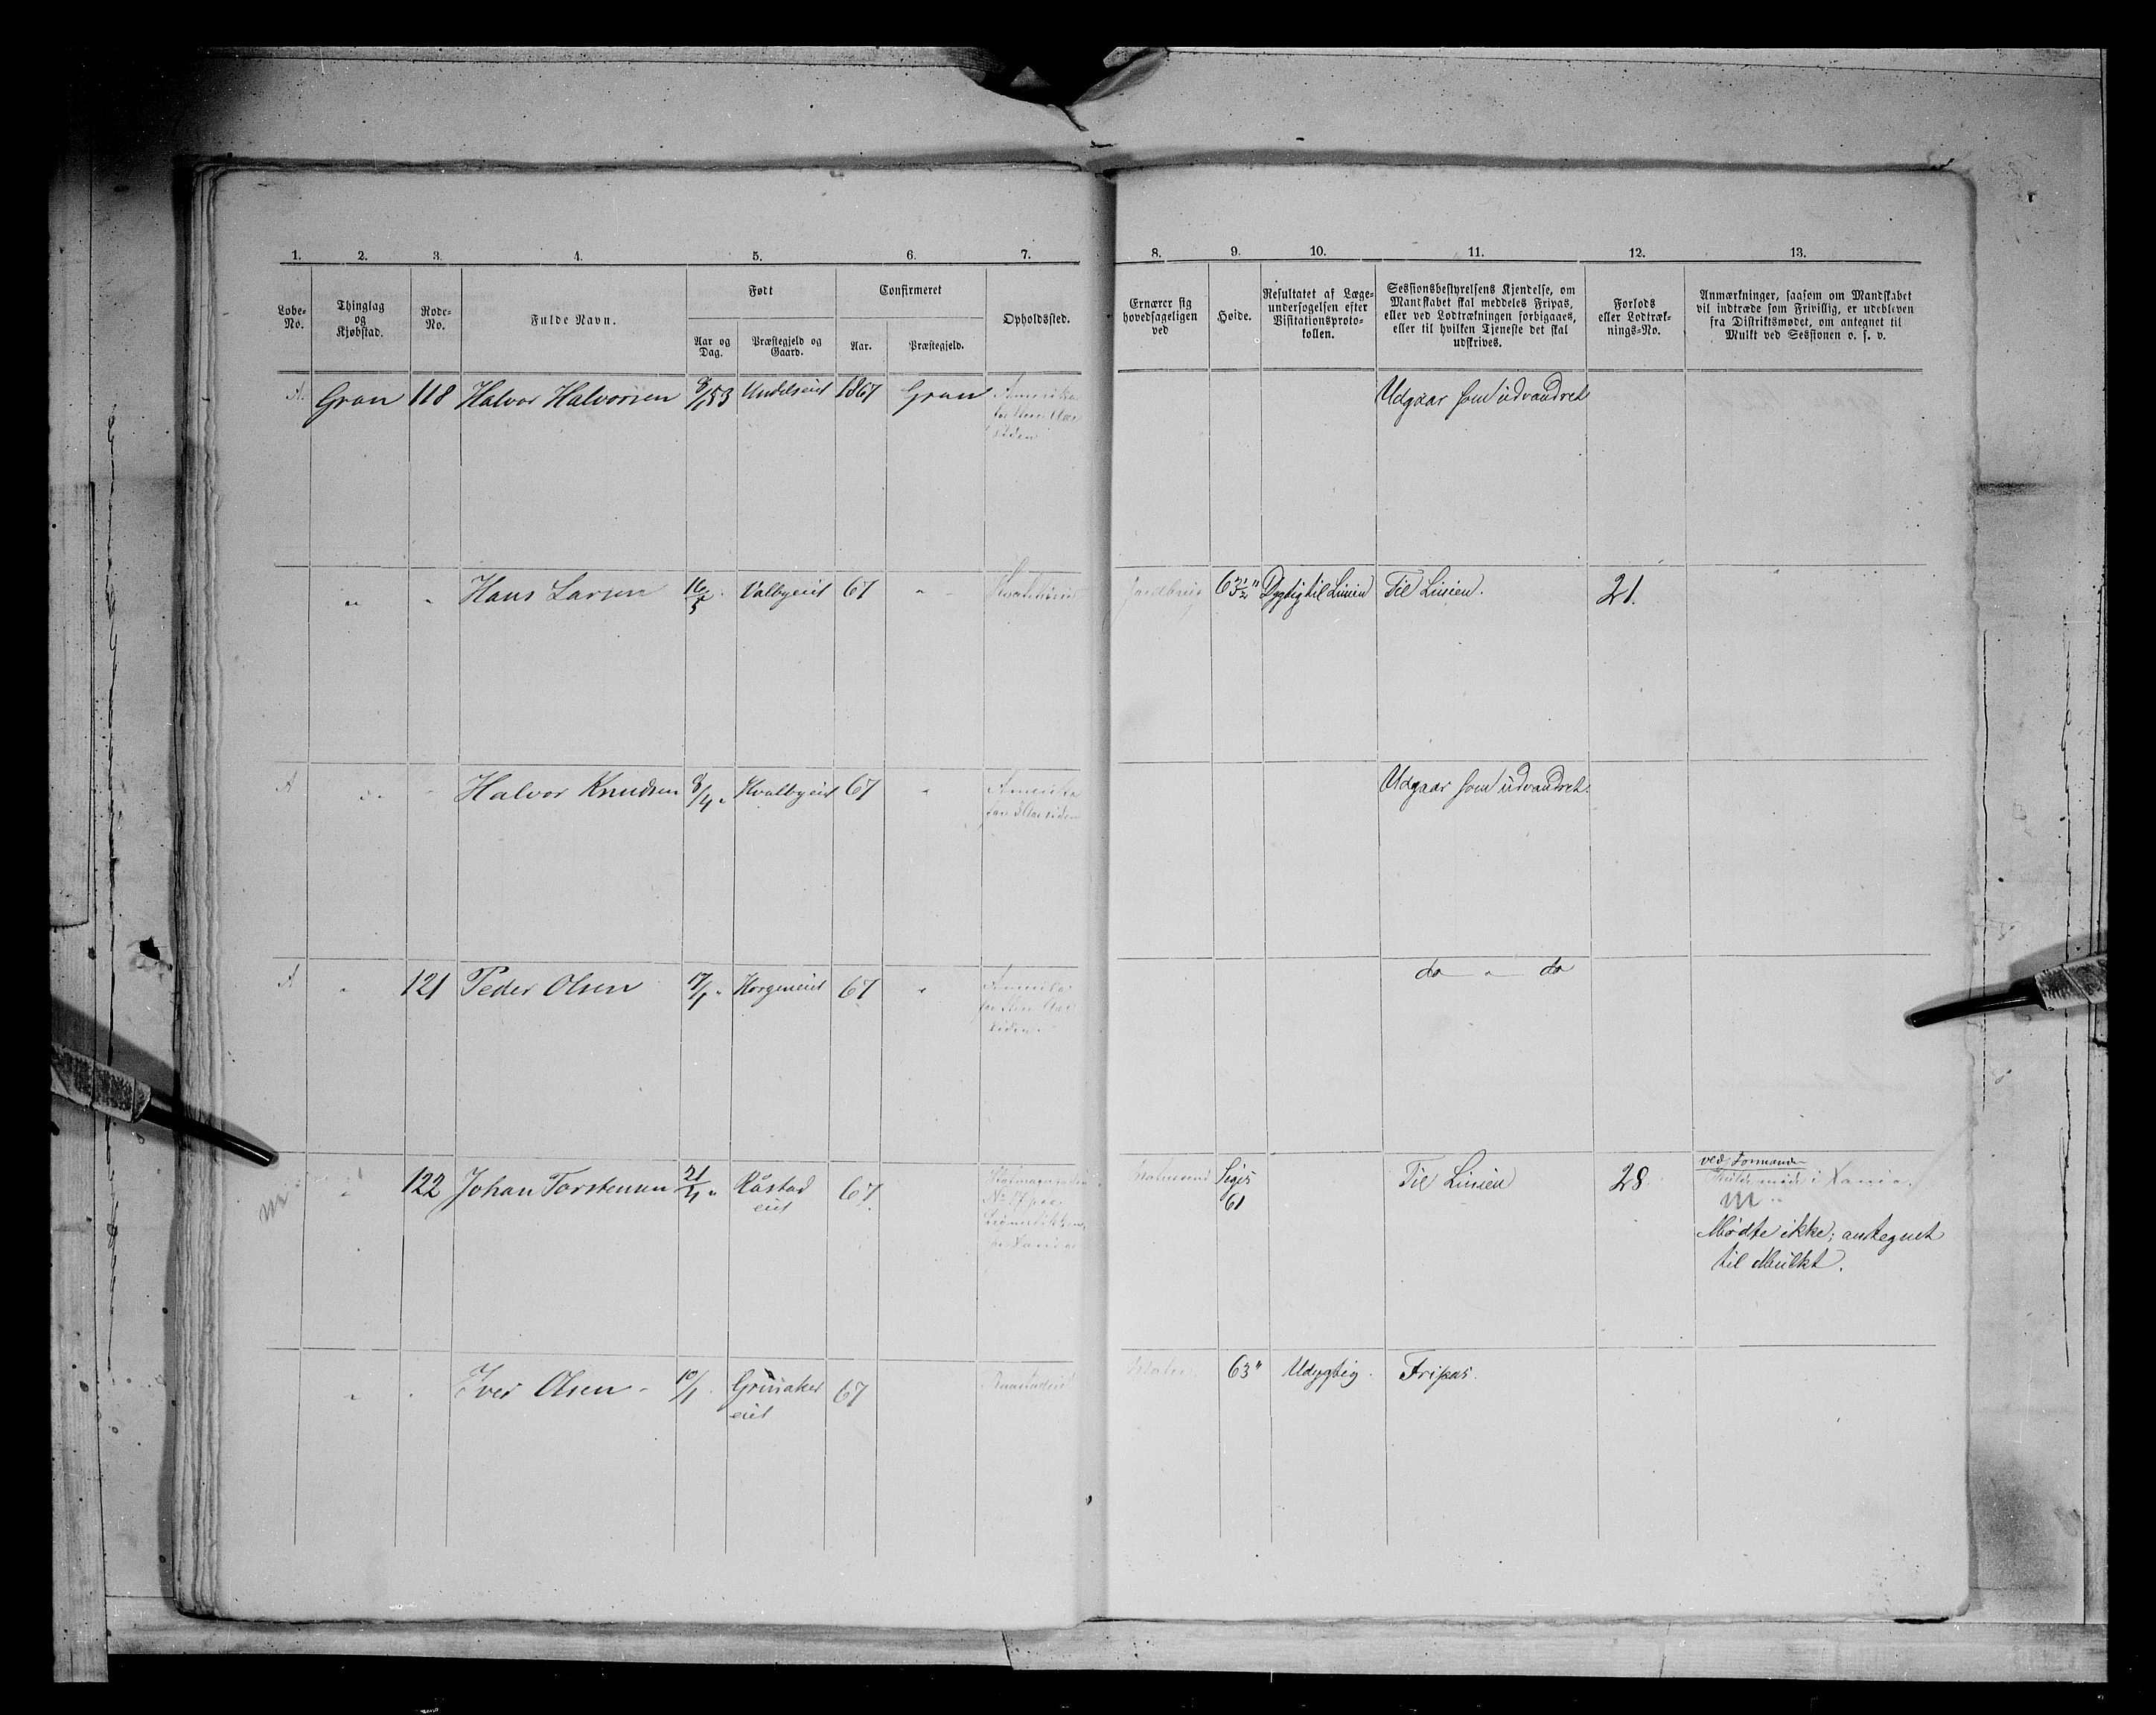 1. 2. 3. 4. 5. 6. 7. 8. 9. 10. 11. 12. 13.
Løbe-No.
Thinglag og Kjøbstad.
Rode-No.
Fulde Navn.
Født
Aar og Dag.
Præstegjeld og Gaard.
Confirmeret
Aar.
Præstegjeld.
Opholdssted.
Ernærer sig hovedsageligen ved
Høide.
Resultatet af Læge-
undersøgelsen efter
Visitationsproto-
kollen.
Sessionsbestyrelsens Kjendelse, om
Mandskabet skal meddeles Fripas,
eller ved Lodtrækningen forbigaaes,
eller til hvilken Tjeneste det skal
udskrives.
Forlods
eller Lodtræk-
nings-No.
Anmærkninger, saasom om Mandskabet
vil indtræde som Frivillig, er udebleven
fra Distriktsmødet, om antegnet til
Mulkt ved Sessionen o. s. v.
A. Gran 118 Halvor Halvorsen 8/1 53 1867 Gran Amerika
siden
Udgaar som udvandret
" " Hans Larsen 16/5 Valbyeiet 67 " 63 1/2" Dygtig til Linien Til Linien. 21.
A " " Halvor Knudsen 8/4 " Hvalbyeiet 67 " Amerika
siden
Udgaar som udvandret.
A " 121 Peder Olsen 17/1 " 67 " Amerika
siden
do " do
m " 122 Johan Torstensen 21/4 " Råstad
eiet
67.
Siges
61
Til Linien 28
ved Formanden
m
Mødte ikke; antegnet
til Mulkt.
" " Iver Olsen 10/1 Grinaker
eiet
67 63" Udygtig. Fripas.